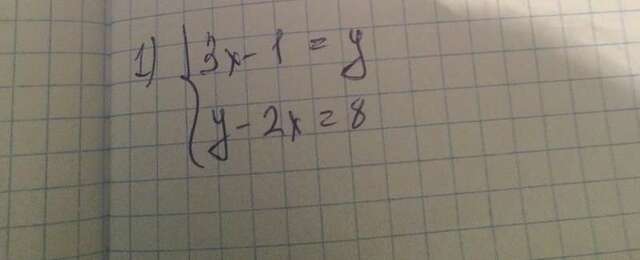 1) { 3x - 1 = y
y - 2x = 8